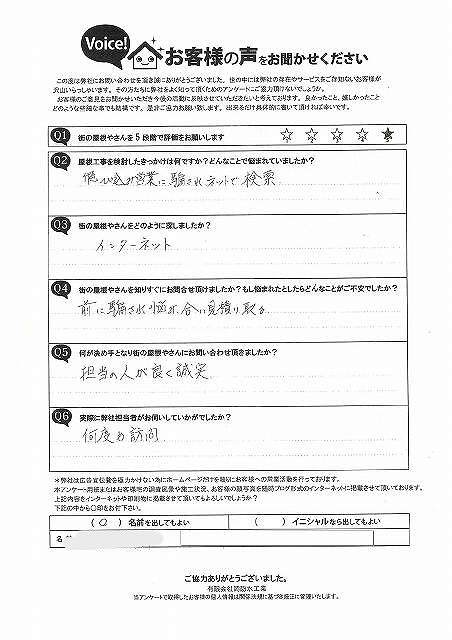 Voice!
お客様の声をお聞かせください
この度は弊社にお問い合わせを頂き誠にありがとうございました。世の中には弊社の存在やサービスをご存知ないお客様が
沢山いらっしゃいます。その方たちに弊社をよく知って頂くためのアンケートにご協力頂けないでしょうか。
お客様のご意見をお聞かせいただき今後の活動に反映させていただきたいと考えております。良かったこと、嬉しかったこと
どのような些細な事でも結構です。是非ご協力お願い致します。出来るだけ具体的に書いて頂ければ幸いです。
Q1 街の屋根やさんを5段階で評価をお願いします ☆ ☆ ☆ ☆ ★
Q2 屋根工事を検討したきっかけは何ですか?どんなことで悩まれていましたか?
飛び込み営業に騙されネットで検索
Q3 街の屋根やさんをどのように探しましたか?
インターネット
Q4 街の屋根やさんを知りすぐにお問合せ頂けましたか?もし悩まれたとしたらどんなことがご不安でしたか?
前に騙され悩み、合い見積り取る
Q5 何が決め手となり街の屋根やさんにお問い合わせ頂きましたか?
担当の人が良く誠実
Q6 実際に弊社担当者がお伺いしていかがでしたか?
何度も訪問
*弊社は広告宣伝費を極力かけない為にホームページだけを頼りにお客様への営業活動を行っております。
本アンケート用紙またはお客様宅の調査風景や施工状況、お客様の顔写真を随時ブログ形式のインターネットに掲載させて頂いております。
上記内容をインターネットや印刷物に掲載させて頂いてもよろしいでしょうか?
下記の中から〇印をお付下さい。
( 〇 ) 名前を出してもよい ( ) イニシャルなら出してもよい
名前
ご協力ありがとうございました。
当アンケートで取得したお客様の個人情報は関係法規に基づき厳正に管理いたします。